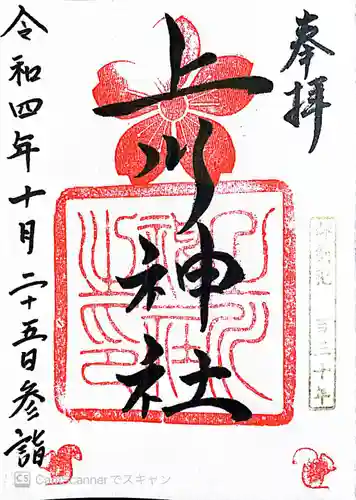 奉拝
上川神社
令和四年十月二十五日参詣
CS CamScannerでスキャン